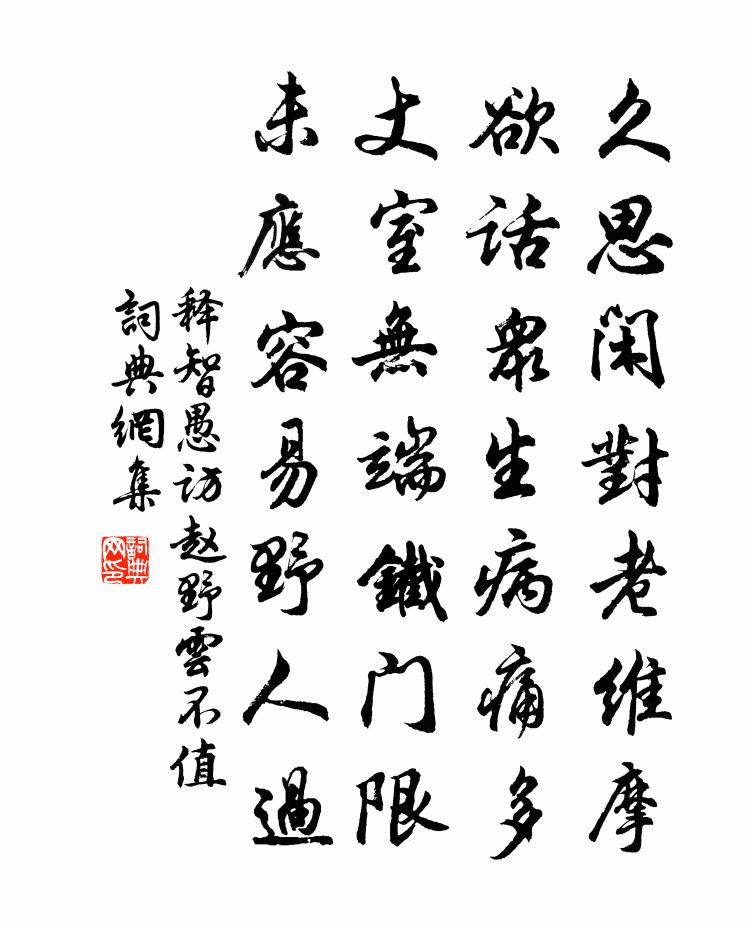 久思閑對老維摩
欲話衆生病痛多
丈室無端鐵门限
未應容易野人過
释智愚访赵野雲不值
詞典網集
詞典网印